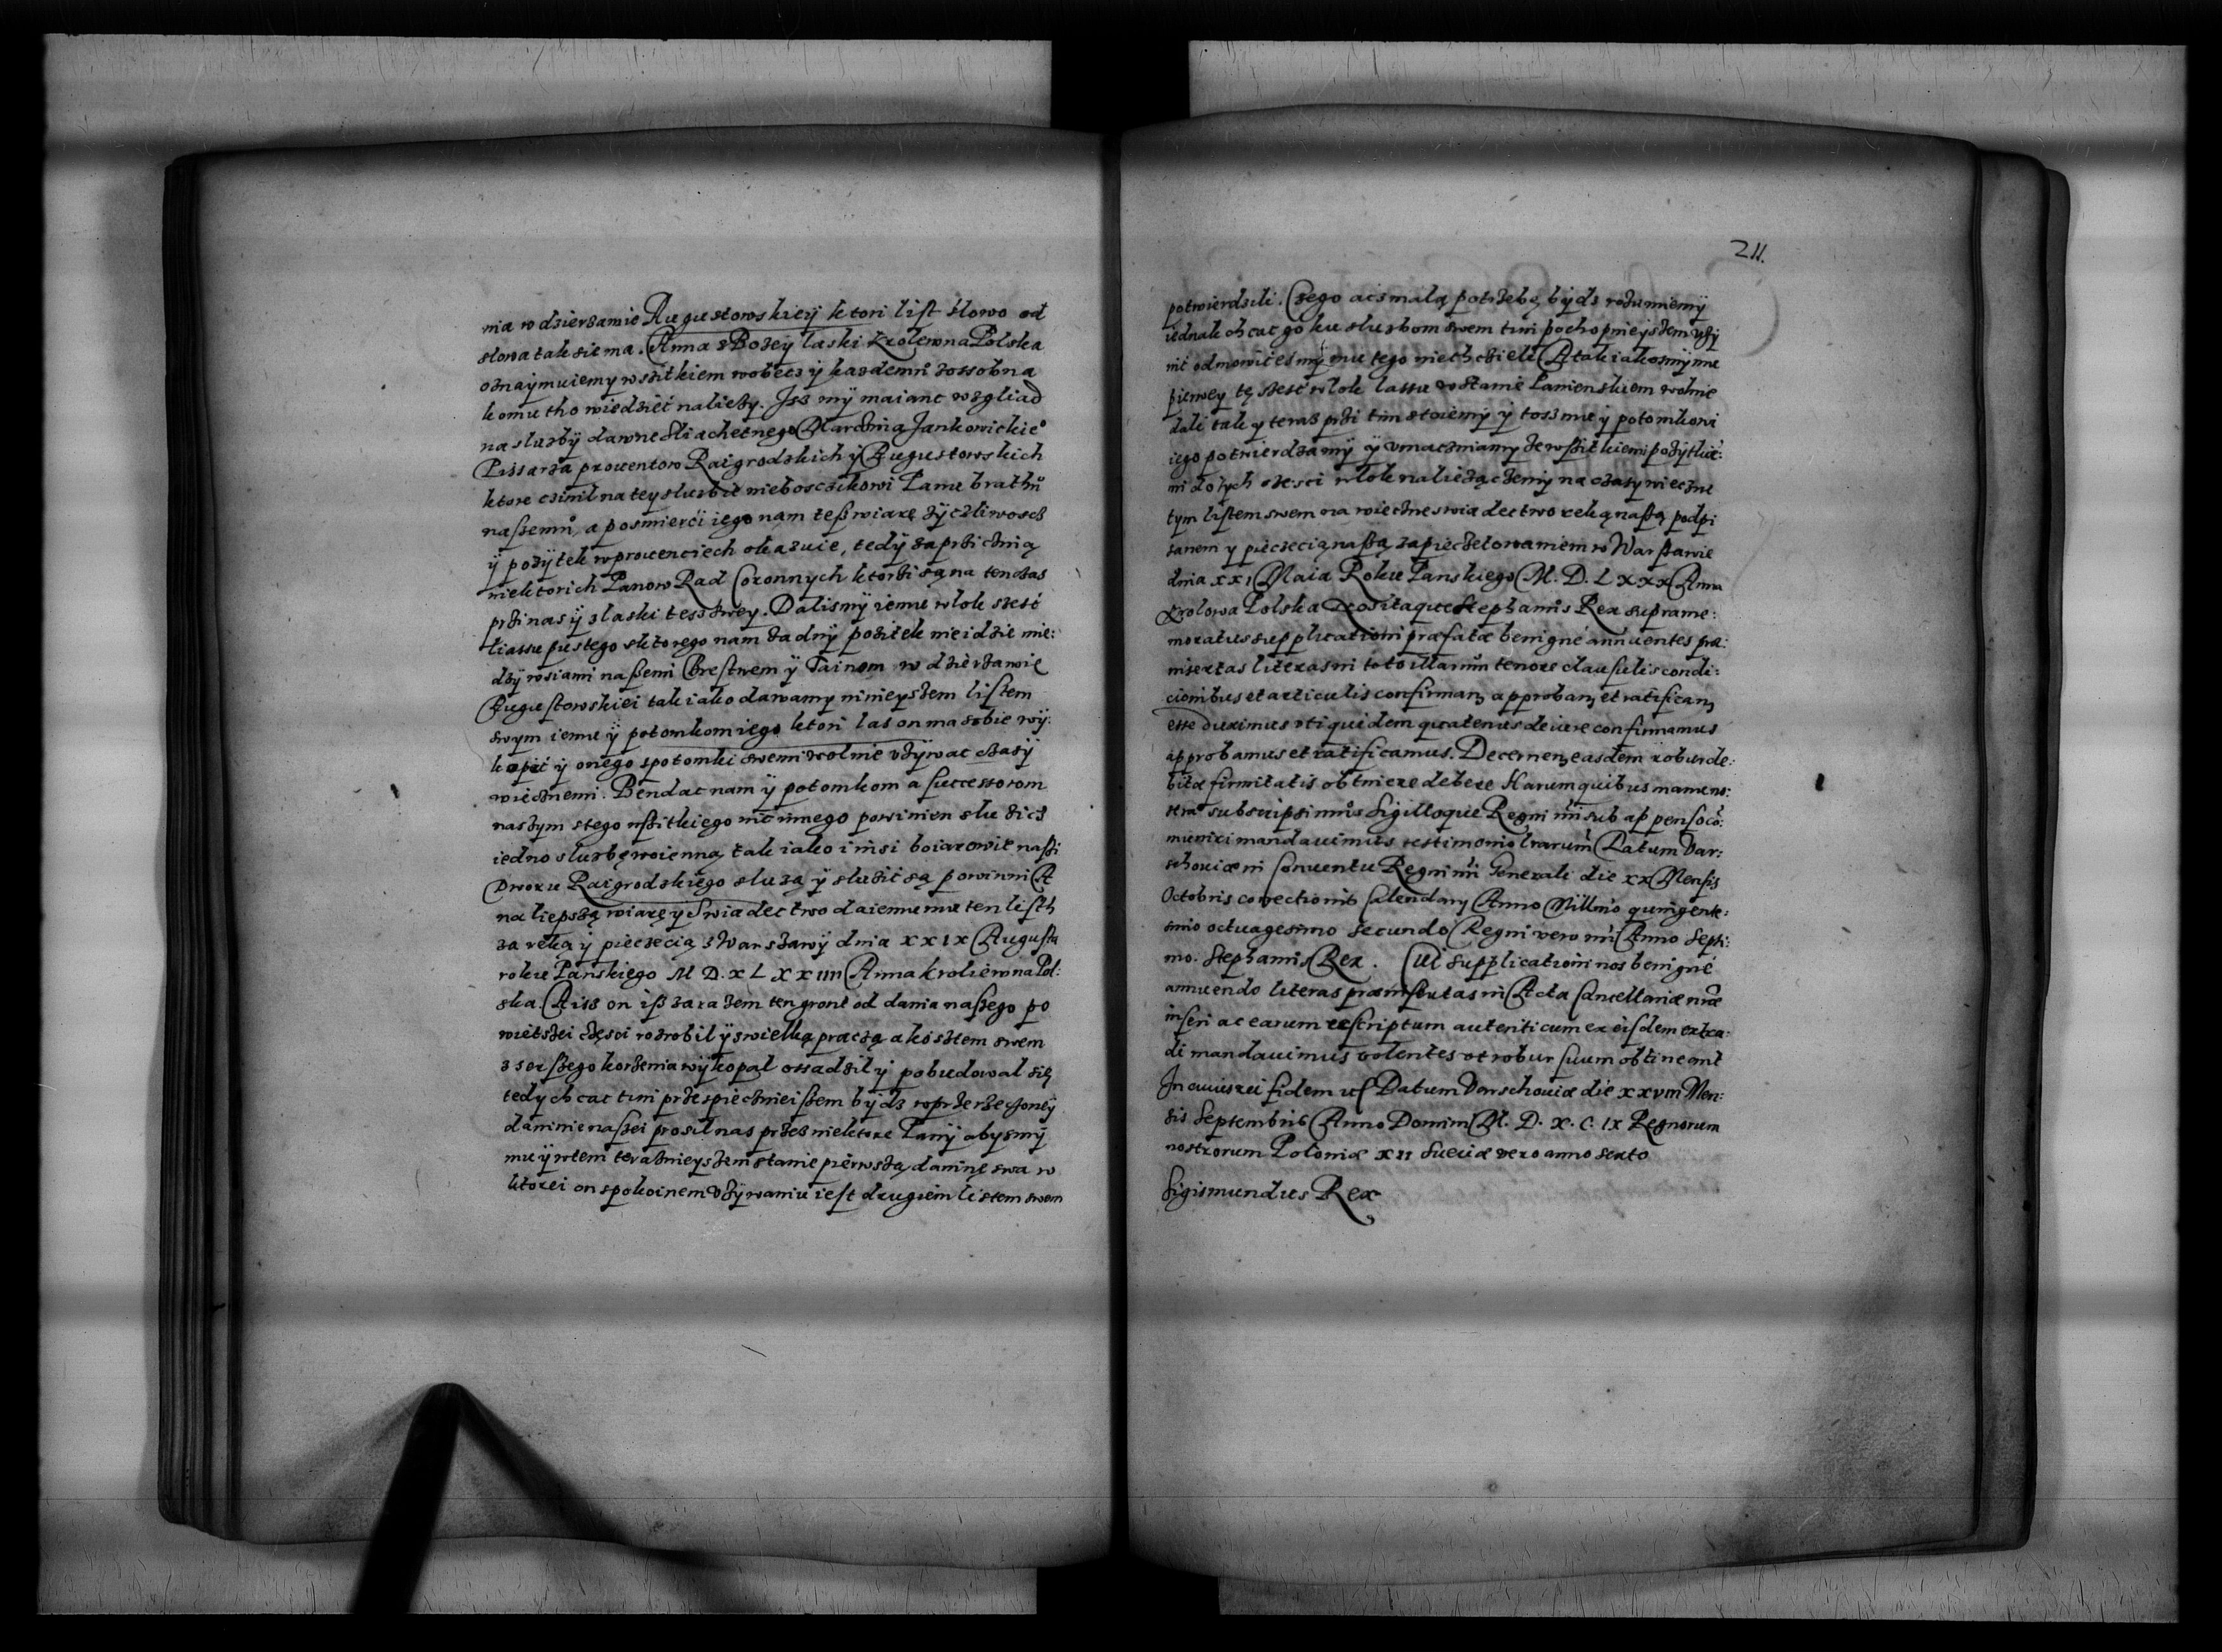 nia w dzierzawie Augustowskieÿ ktori list slowo od
slowa tak sie ma. Anna z Bozeÿ laski Krolewna Polska
oznaÿmuiemy wszitkiem wobecz ÿ kazdemu zossobna
komu tho wiedzieć nalieży. Isz mÿ maianc wzgliad
na sluzbÿ dawne Sliachetnego Marcina Jankowickie°
Pissarza prouentow Raigrodzkich ÿ Augustowskich
ktore czinil na teÿ sluzbie nieboszczikowi Panu brathu
naszemu, a po smierci iego nam tesz wiarę zÿczliwoscz
ÿ pozÿtek w prouenciech okazuie, tedÿ za prziczinią
niektorich Panow Rad Coronnych ktorzi są na tenczas
przi nas ÿ z laski tesz swey. Dalismÿ iemu wlok szesć
liassu pustego z ktorego nam zadnÿ pozitek nie idzie mie:
dzÿ wsiami naszemi Brestwem ÿ Tainom w dzierzawie
Augustowskiei tak iako dawamy ninieyszem listem
swym iemu ÿ potomkom iego ktori las on ma sobie wÿ:
kopić ÿ onego s potomki swemi wolnie vzÿwac czasÿ
wiecznemi. Bendac nam ÿ potomkom a successorom
naszym s tego wszitkiego nic innego powinien sluzicz
iedno sluzbę woienną tak iako inszi boiarowie naszi
Dworu Raigrodskiego sluzą ÿ sluzić są powinni A
na liepszą wiarę ÿ Swiadectwo daiemy mu ten listh
za ręką ÿ pieczecią z Warszawÿ dnia XXIX Augusta
roku Panskiego M D. X L XXIIII Anna kroliewna Pol:
ska. A isz on isz zarazem ten gront od dania naszego po
wietszei częsci rozrobil ÿ s wielką praczą a kosztem swem
z seroszego korzenia wÿkopal ossadzil ÿ pobudowal się
tedy chcac tim przespiecznieiszem bÿdz w przerzeczoneÿ
daninie naszei prosil nas przez niektore Panÿ abysmÿ
mu ÿ w tem teraznieyszem stanie pierwszą daninę swa w
ktorei on spokoinem vzÿwaniu iest drugiem listem swem
211.
potwierdzili. Czego acz malą potrzebę bÿdz rozumiemÿ
iednak chcac go ku sluzbom swem tim pochopnieÿszem vczÿ
nić odmowić esmÿ mu tego niechcieli A tak iakosmÿ mu
pierwey tę szesć wlok lassu w stanie Panienskiem wolnie
dali tak ÿ teraz przi tim stoiemÿ ÿ tosz mu ÿ potomkowi
iego potwierdzamÿ ÿ vmacniamy ze wszitkiemi pozÿtka:
mi do tych szesci wlok naliezączemi na czasÿ wieczne
tym listem swem na wieczne swiadectwo ręką naszą podpi
sanem ÿ pieczecią naszą zapieczetowaniem w Warszawie
dnia XXI Maia Roku Panskiego M. D. LXXX Anna
Krolowa Polska Nos itaque Stephanus Rex suprame:
moratus supplicationi praefatae benigné annuentes prae:
insertas literas in toto illarum tenore clausulis condi:
cionibus et articulis confirmandas approbandas et ratificandas
esse duximus uti quidem quatenus de iure confirmamus
approbamus et ratificamus. Decernentes easdem robur de:
bitae firmitatis obtinere debere Harum quibus manu nos:
tra subscripsimus Sigillumque Regni nri sub appenso co:
muniri mandauimus testimonio lrarum Datum Var:
schouiae in Conuentu Regni nri Generali die XX Mensis
Octobris correctionis Calendary Anno Millmo quingente:
simo octuagesimo secundo Regni vero nri Anno Septi:
mo. Stephanus Rex. Cui supplicationi nos benigné
annuendo literas praeinsertas in Acta Cancellariae nrae
inseri ac earum rescriptum autenticum ex eisdem extra:
di mandauimus volentes ut robur suum obtineant
In cuius rei fidem etc Datum Varschouiae die XXVIII Men:
sis Septembris Anno Domini M. D. X. C. IX Regnorum
nostrorum Poloniae XII Sueciae vero anno sexto
Sigismundus Rex